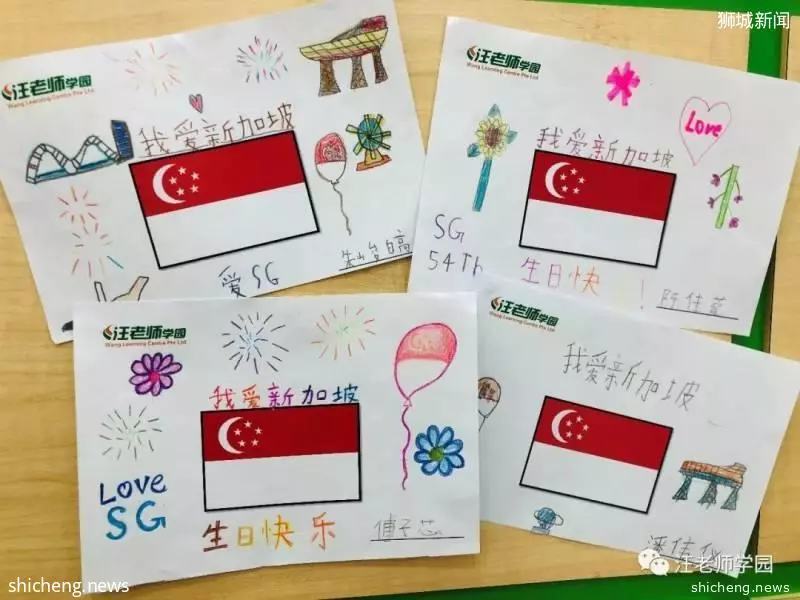 狮城新闻
汪老师学园
Wang Learning Centre Pte Ltd
我爱新加坡
爱SG
汪老师学园
Wang Learning Centre Pte Ltd
Love
我爱新加坡
SG
54Th
生日快
!
汪老师学园
Wang Learning Centre Pte Ltd
我爱新加坡
LOVE
SG
生日快乐
傅子芯
汪老师学园
Wang Learning Centre Pte Ltd
我爱新加坡
汪老师学园
shicheng.news
shicheng.news